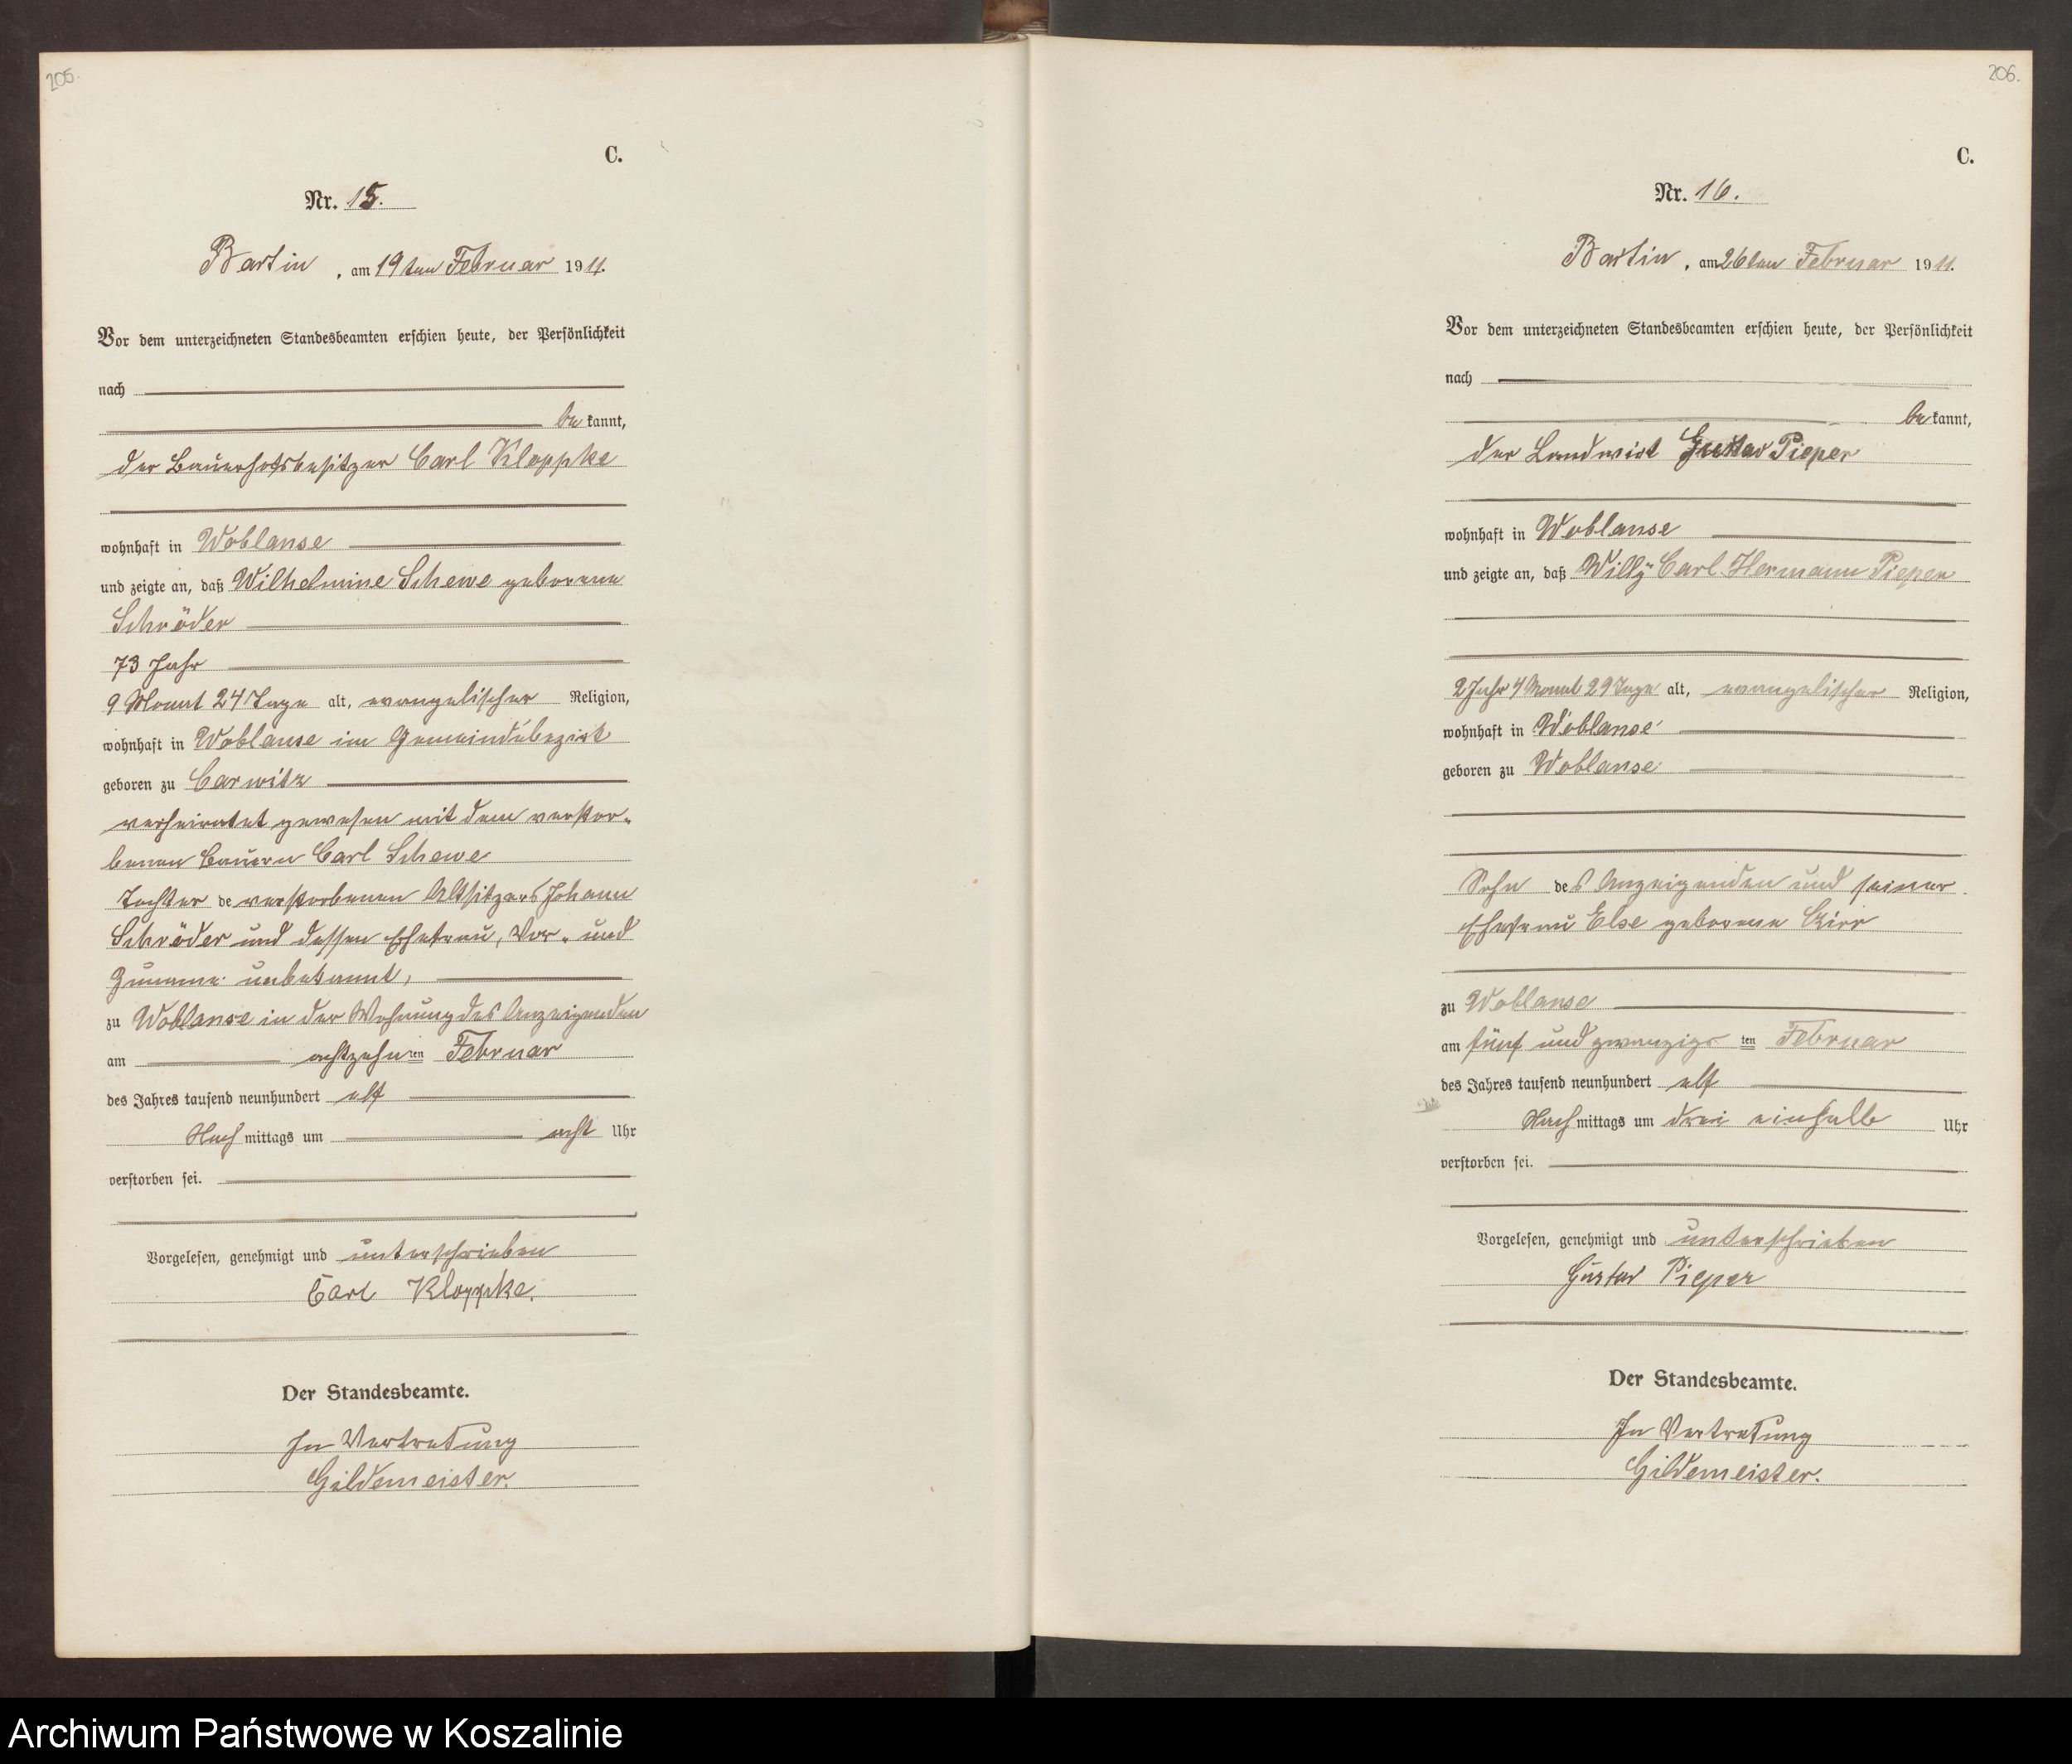 205.
C.
Nr. 15.
Bartin, am 19ten Februar 1911.
Vor dem unterzeichneten Standesbeamten erschien heute, der Persönlichkeit
nach
bekannt,
der Bauerhofsbesitzer Carl Kloppke
wohnhaft in Woblanse
und zeigte an, daß Wilhelmine Schewe geborene
Schröder
73 Jahr
9 Monat 24 Tage alt, evangelischer Religion,
wohnhaft in Woblanse im Gemeindebezirk
geboren zu Carwitz
verheiratet gewesen mit dem verstor-
benen Bauern Carl Schewe
Tochter de verstorbenen Altsitzers Johann
Schröder und dessen Ehefrau, Vor- und
Zuname unbekannt,
zu Woblanse in der Wohnung des Anzeigenden
am achtzehnten Februar
des Jahres tausend neunhundert elf
Nachmittags um acht Uhr
verstorben sei.
Vorgelesen, genehmigt und unterschrieben
Carl Kloppke.
Der Standesbeamte.
In Vertretung
Gildemeister.
206.
C.
Nr. 16.
Bartin, am 26ten Februar 1911.
Vor dem unterzeichneten Standesbeamten erschien heute, der Persönlichkeit
nach
bekannt,
der Landwirt Gustav Pieper
wohnhaft in Woblanse
und zeigte an, daß Willy Carl Hermann Pieper
2 Jahr 4 Monat 29 Tage alt, evangelischer Religion,
wohnhaft in Woblanse
geboren zu Woblanse
Sohn des Anzeigenden und seiner
Ehefrau Else geborene
zu Woblanse
am fünf und zwanzigsten Februar
des Jahres tausend neunhundert elf
Nachmittags um drei einhalb Uhr
verstorben sei.
Vorgelesen, genehmigt und unterschrieben
Gustav Pieper
Der Standesbeamte.
In Vertretung
Gildemeister.
Archiwum Państwowe w Koszalinie